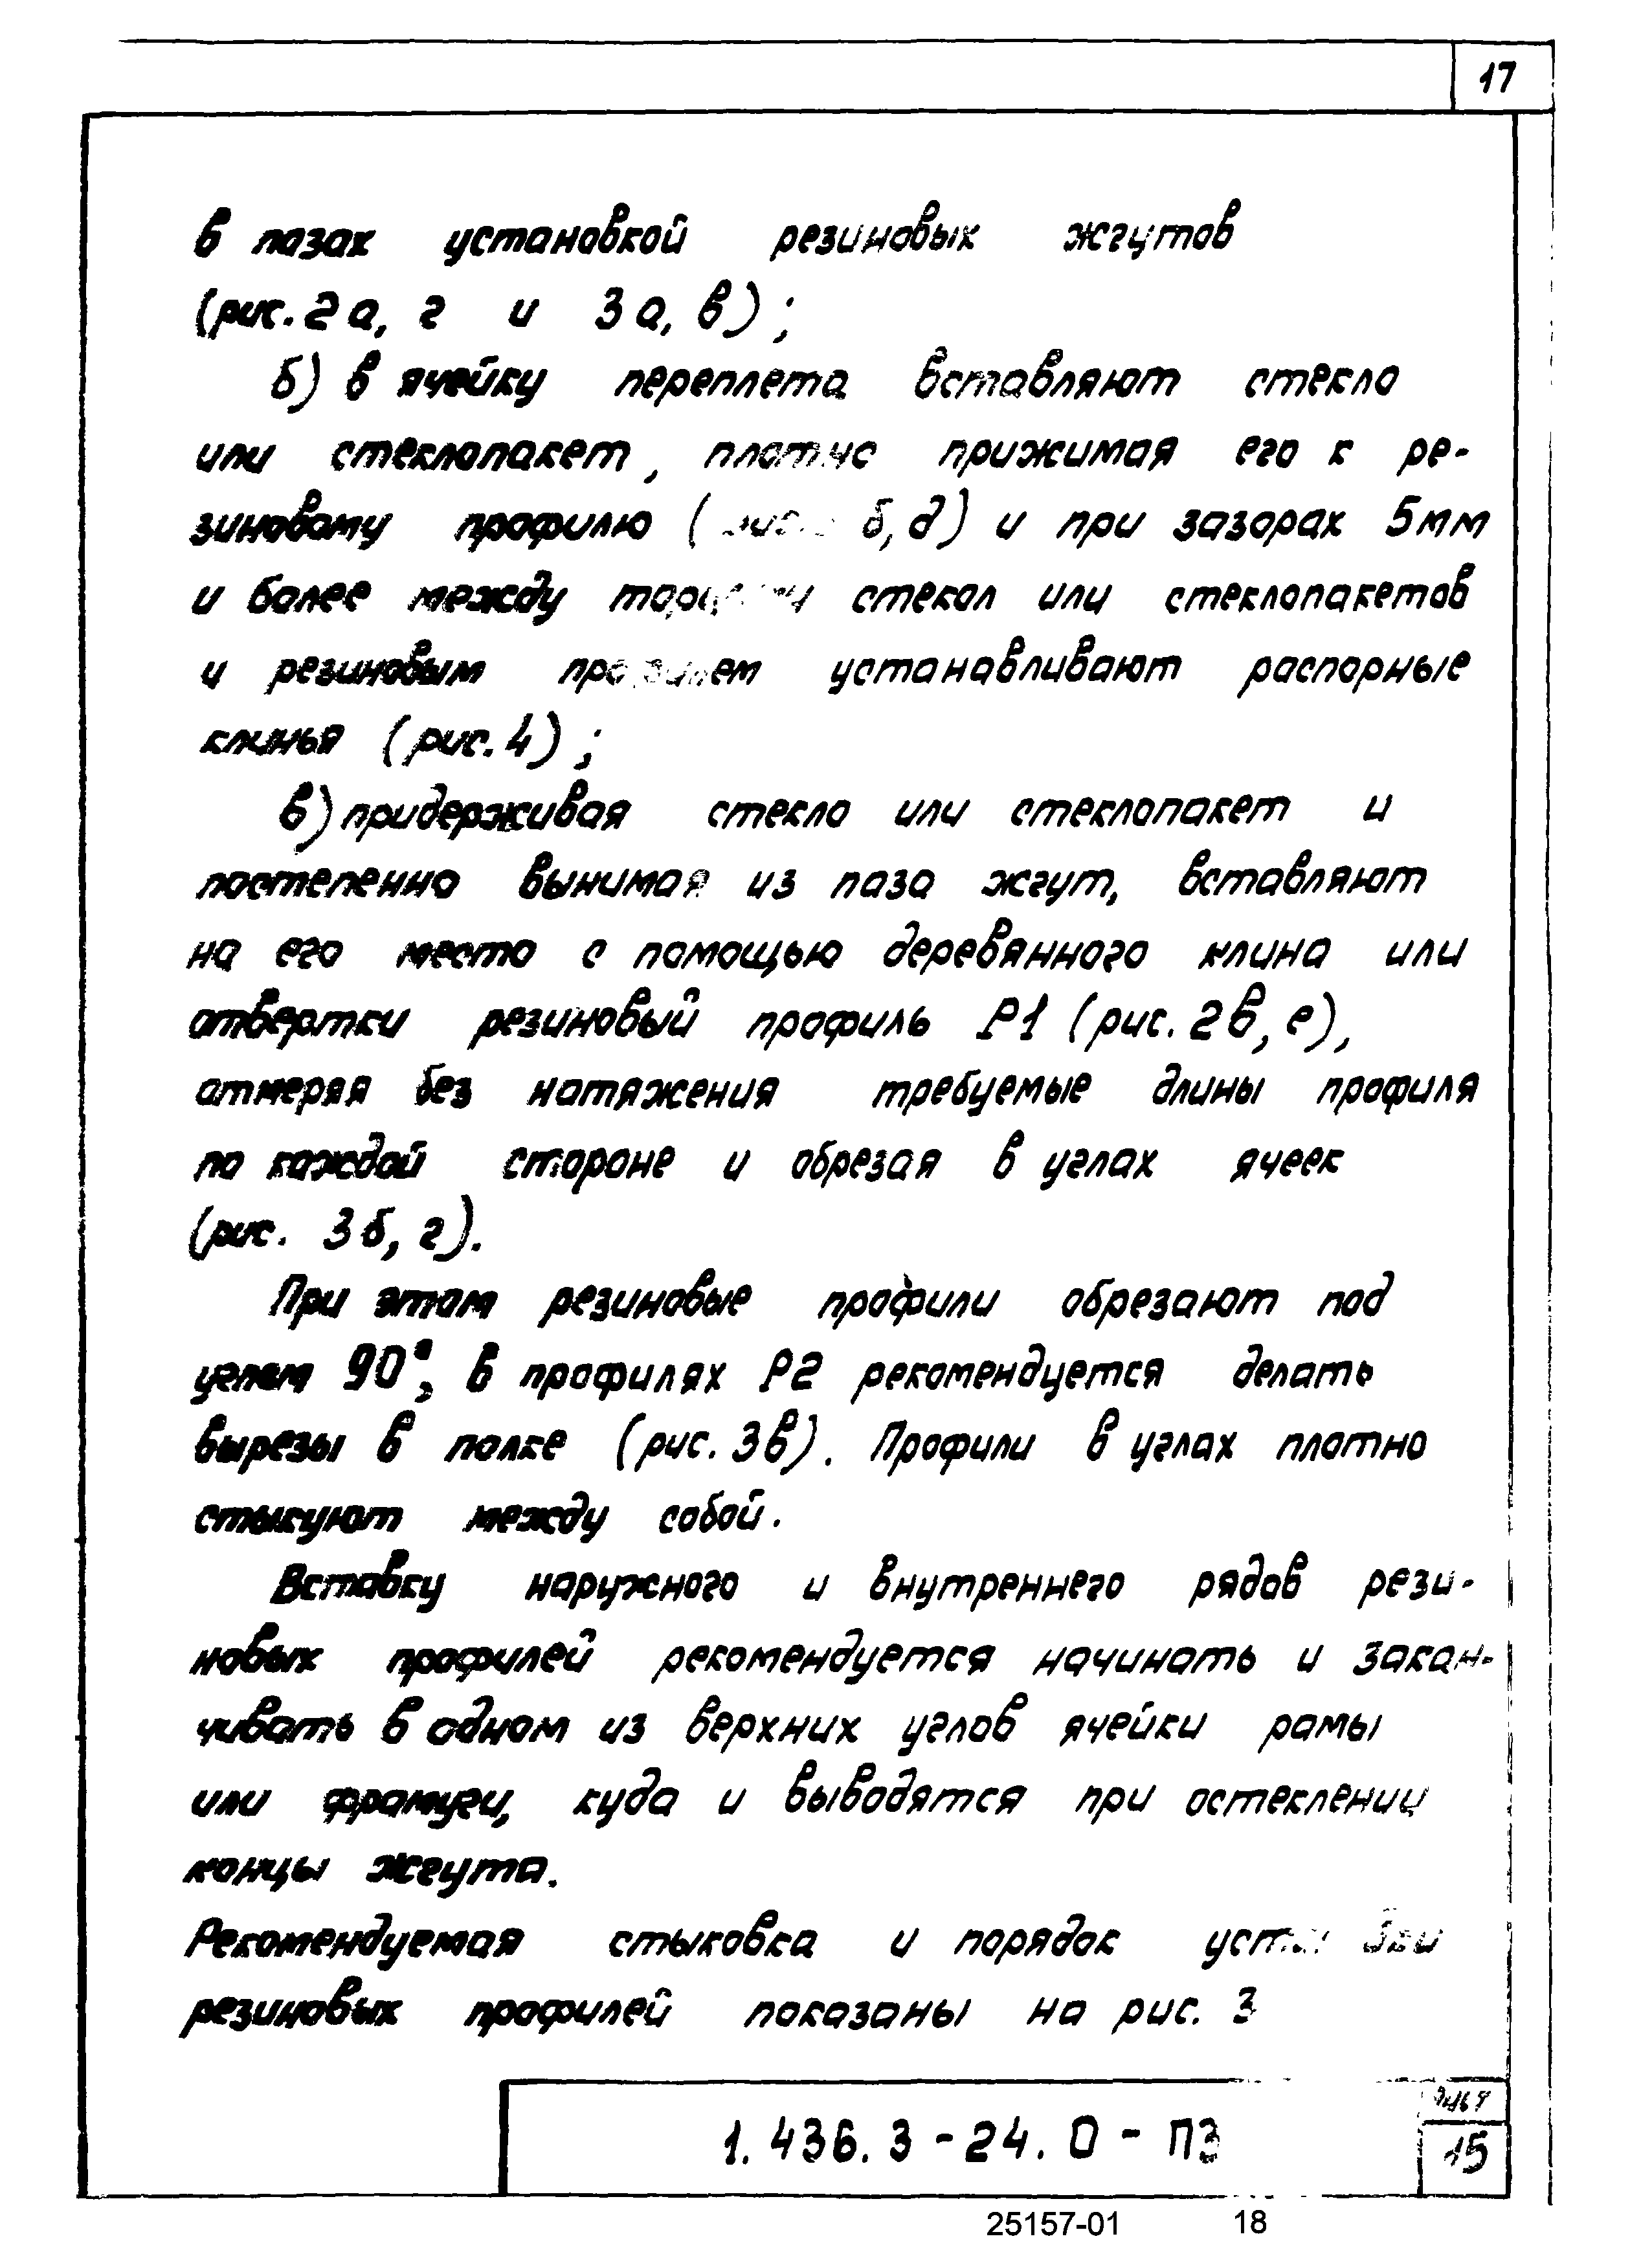 17
в пазах установкой резиновых жгутов
(рис. 2а, г и 3а, в);
б) в ячейку переплета вставляют стекло
или стеклопакет, плотно прижимая его к ре-
зиновому профилю ( б, д) и при зазорах 5мм
и более между торцами стекол или стеклопакетов
и резиновым профилем устанавливают распорные
клинья (рис. 4);
в) придерживая стекло или стеклопакет и
постепенно вынимая из паза жгут, вставляют
на его место с помощью деревянного клина или
отвертки резиновый профиль Р1 (рис. 2в, е),
отмеряя без натяжения требуемые длины профиля
по каждой стороне и обрезая в углах ячеек
(рис. 3б, г).
При этом резиновые профили обрезают под
углом 90°, в профилях Р2 рекомендуется делать
вырезы в полке (рис. 3в). Профили в углах плотно
стыкуют между собой.
Вставку наружного и внутреннего рядов рези-
новых профилей рекомендуется начинать и закан-
чивать в одном из верхних углов ячейки рамы
или фрамуги, куда и выводятся при остеклении
концы жгута.
Рекомендуемая стыковка и порядок установки
резиновых профилей показаны на рис. 3
1.436.3-24.0-ПЗ
Лист
15
25157-01 18